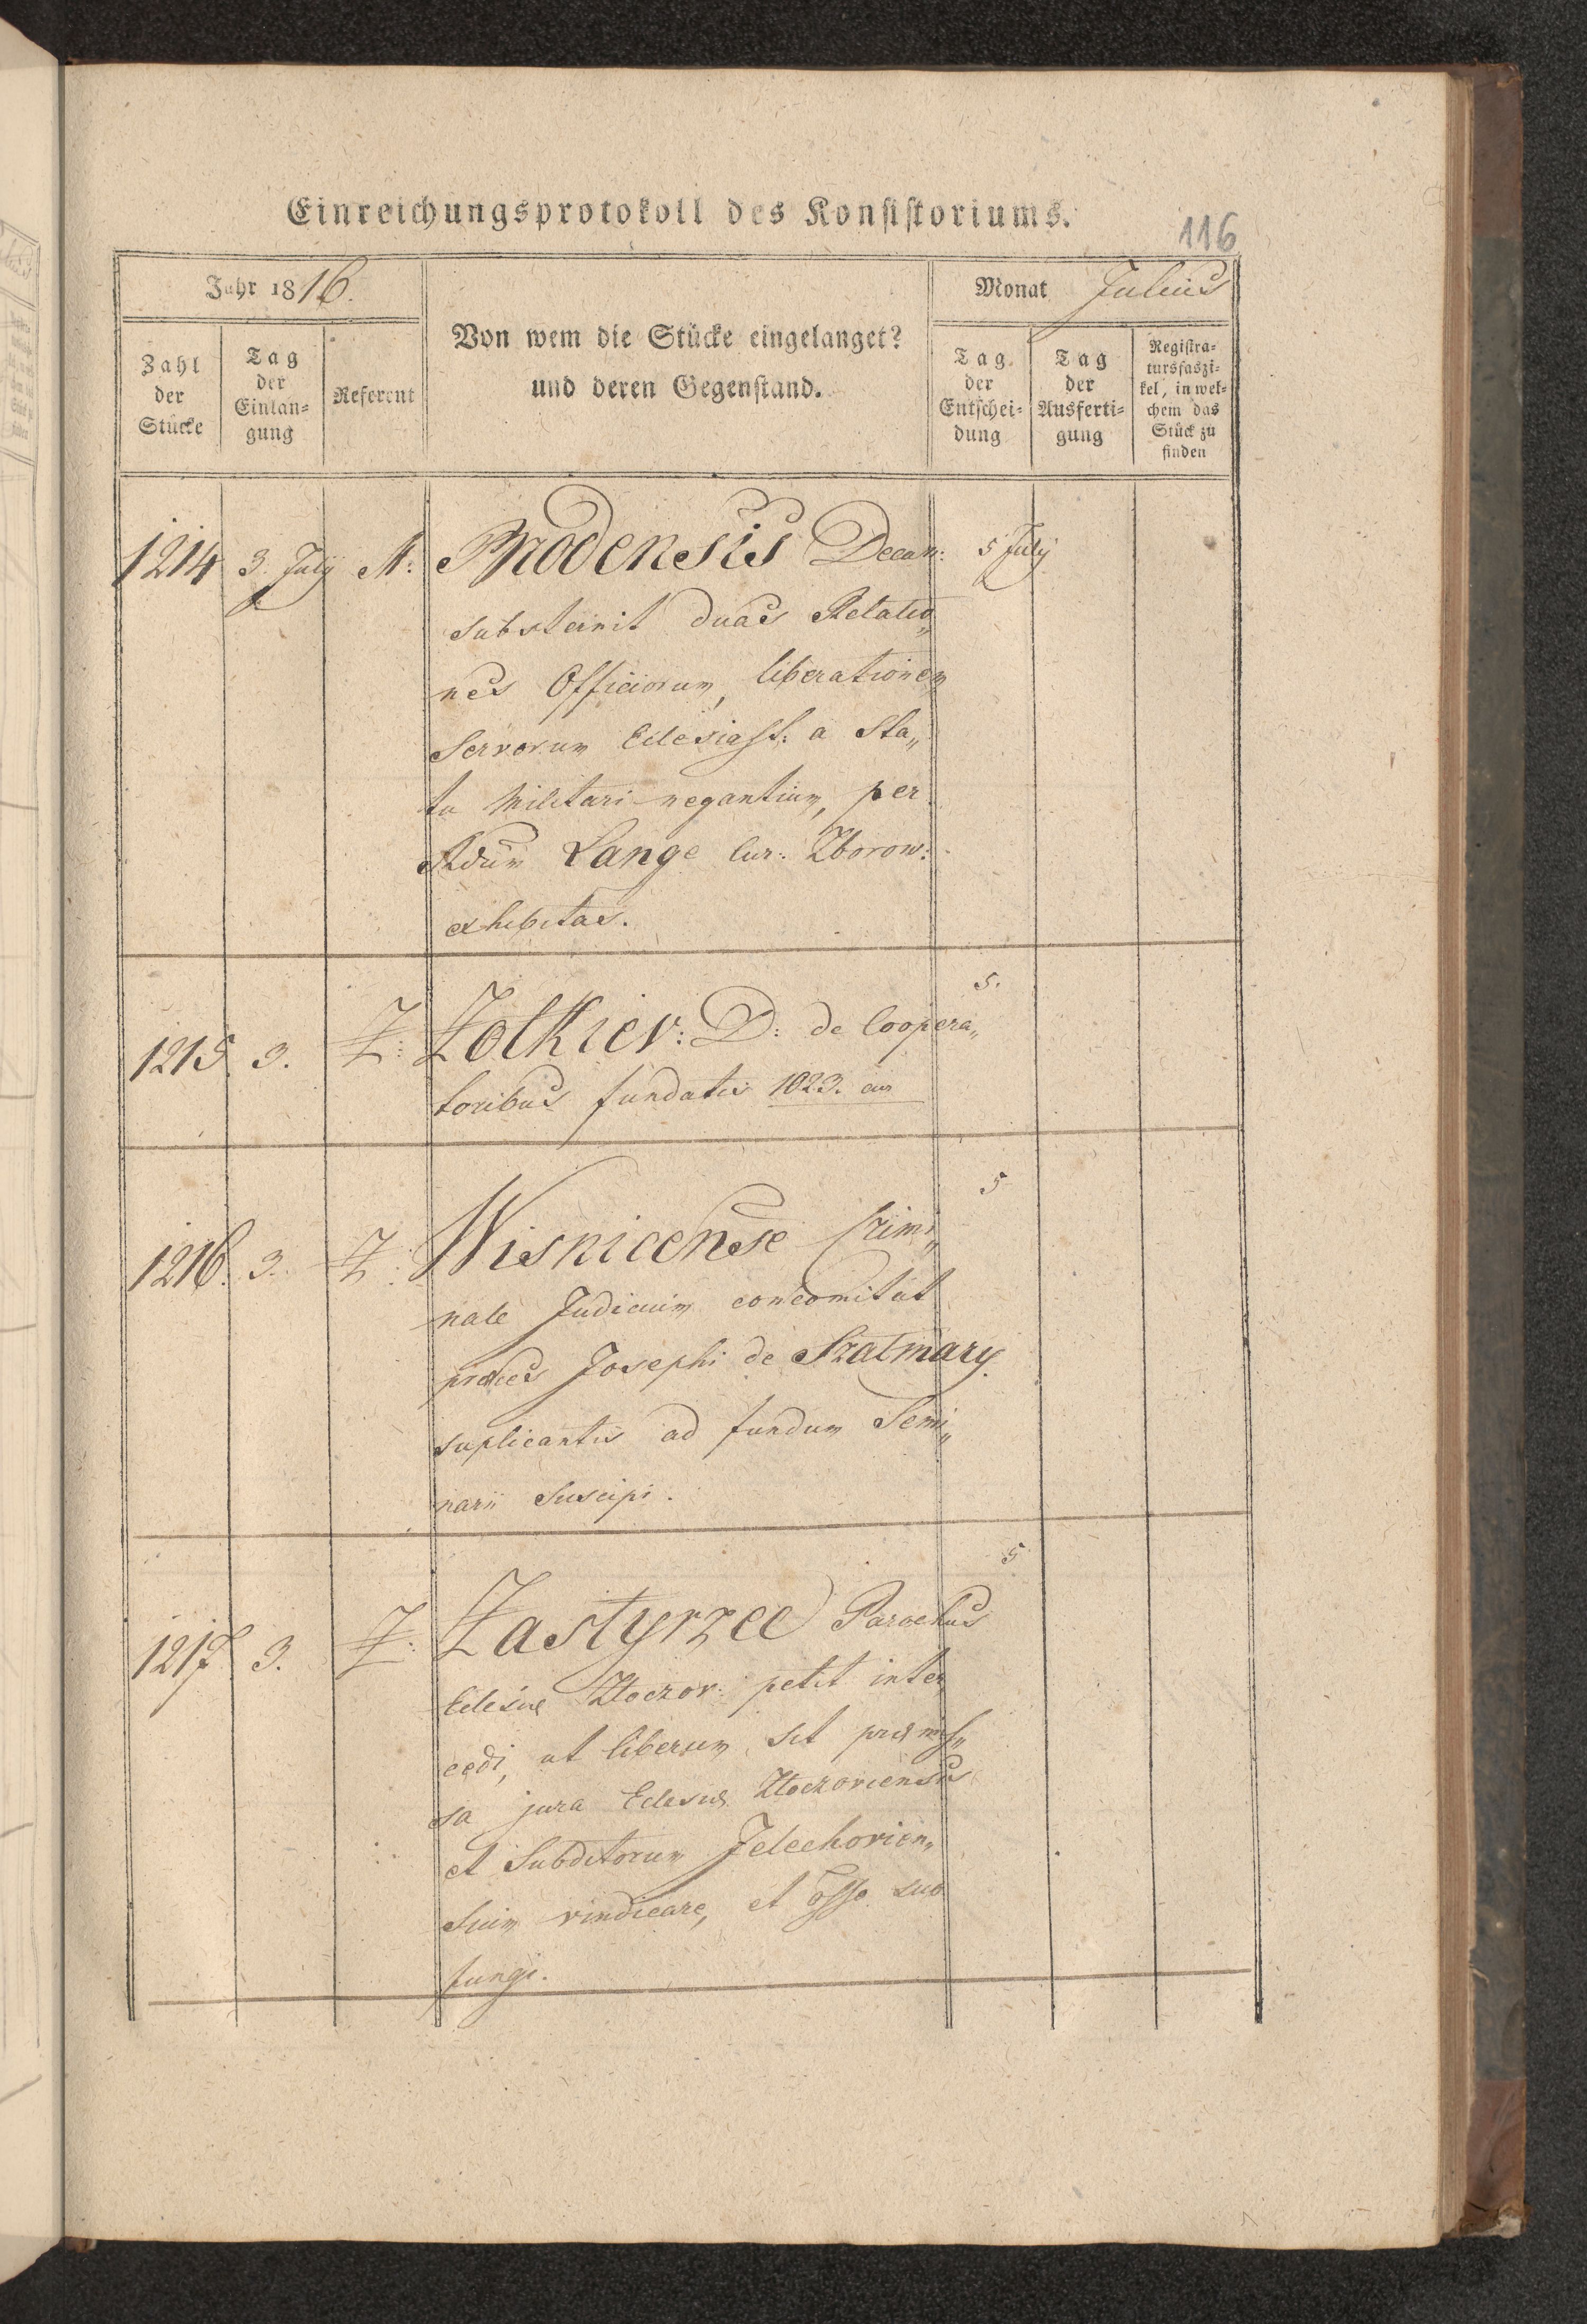 Einreichungsprotokoll des Konsistoriums.
116
Jahr 1816.
Von wem die Stücke eingelanget?
und deren Gegenstand.
Monat Julius
Zahl
der
Stücke
Tag
der
Einlan=
gung
Referent
Tag
der
Entschei=
dung
Tag
der
Ausferti=
gung
Registra=
tursfaszi=
kel, in wel=
chem das
Stück zu
finden
1214 3. July M: Brodensis Decan: 5 July
substernit duas Relatio„
nes Officiorum, liberationem
Servorum Eclesiast: a Sta„
tu Militari negantium, per
Adum Lange Cur: Zborow:
exhibitas.
1215. 3. Z: Zolkiev: D: de Coopera„ 5.
toribus fundatis 1023.
1216. 3. Z: Wisnicense Crimi„ 5
nale Judicium concomitat
preces Josephi de Szatmary
suplicantis ad fundum Semi„
narii Suscipi.
1217 3. Z: Zastyrzec Parochus 5
Eclesiae Zloczov: petit inter
cedi, ut liberum sit praemis„
sa jura Eclesiae Zloczoviensis
et Subditorum Jelechovien„
sium vindicare, et offo suo
fungi.